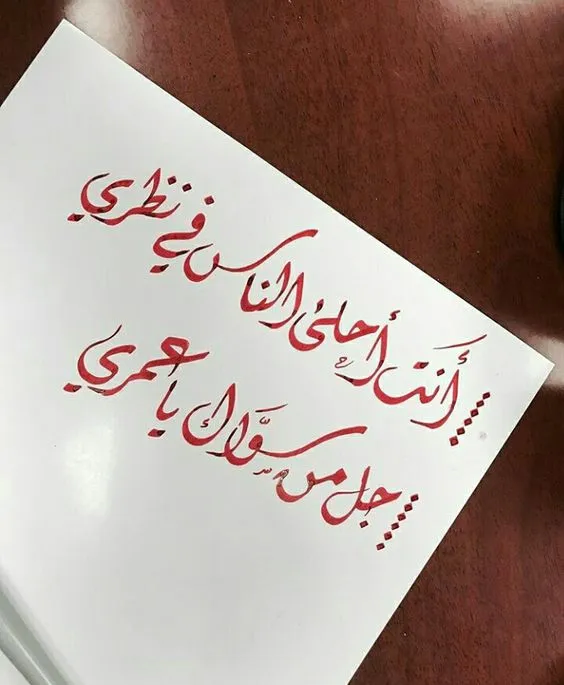 أَنت أحلى الناس في نظري
جل من سوَّاك يا عمري